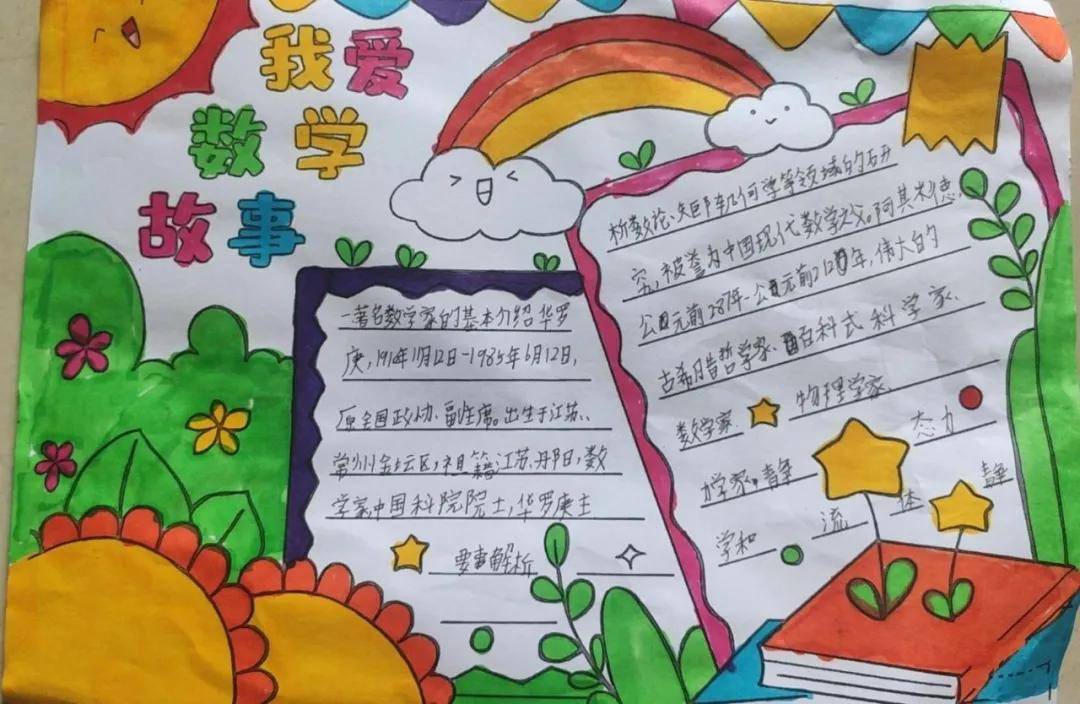 我爱
数学
故事
一著名数学家的基本介绍华罗
庚,1910年11月12日-1985年6月12日,
原全国政协、副主席。出生于江苏、
常州金坛区,祖籍江苏、丹阳,数
学家,中国科院院士,华罗庚主
要事解析
析数论、矩阵几何学等领域的研
究,被誉为中国现代数学之父。阿其米德,
公元前287年-公元前212年,伟大的
古希腊哲学家、百科式科学家、
数学家、物理学家
力学家,静态力
学和流体静